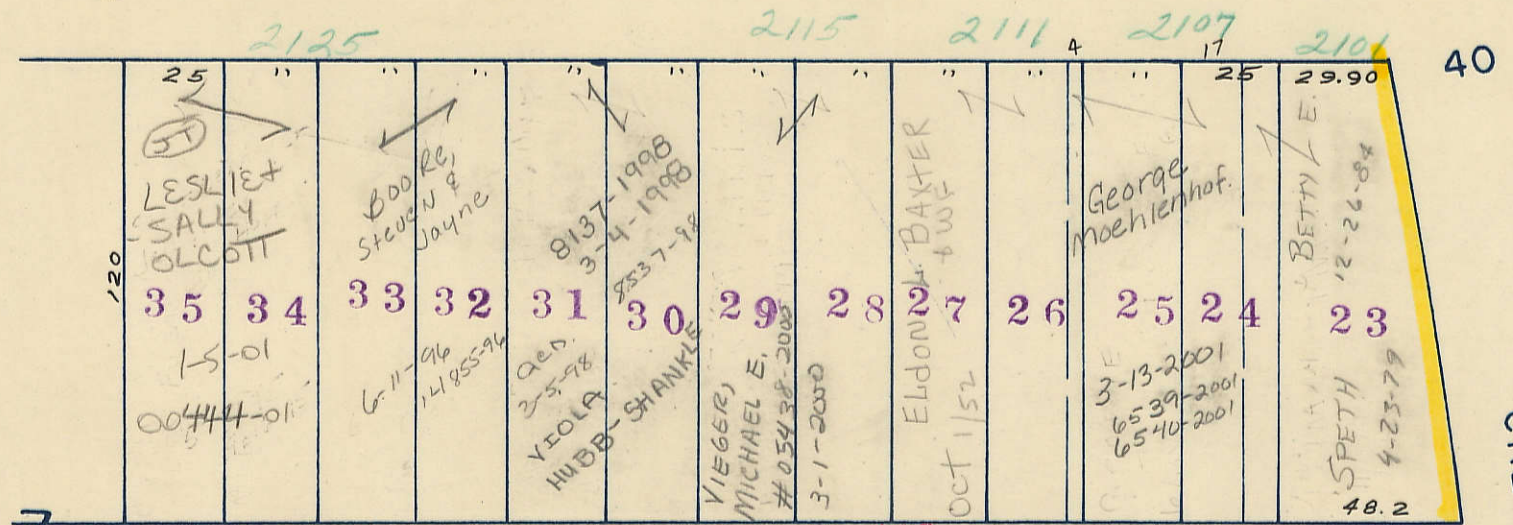 2125
2115
2111
2107
2101
4
17
40
25 " " " " " " " " " " 25 29.90
120
JT
LESLIE +
SALLY
OLCOTT
35 34
1-5-01
00444-01
BOORE,
Steven &
Jayne
33 32
6-11-96
8137-1998
3-4-1998
8537-98
31 30
QCD.
3-5-98
VIOLA
HUBB-SHANKLE
29 28
VIEGER,
MICHAEL E.
#05438-2000
3-1-2000
27 26
ELDON L. BAXTER
& WF
OCT 1/52
George
Moehlenhof.
25 24
3-13-2001
6539-2001
6540-2001
BETTY E.
12-26-84
23
SPETH
4-23-79
48.2